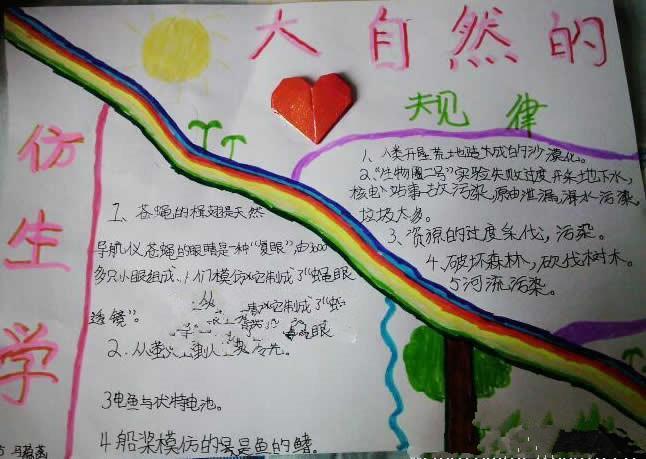 大自然的
规律
仿生学
1、苍蝇的楫翅是天然
导航仪苍蝇的眼睛是一种"复眼"由3000
多只小眼组成、人们模仿它制成了"蝇眼
透镜"。
2、从萤火 到人 冷光。
3电鱼与伏特电池。
4船桨模仿的是鱼的鳍。
1、人类开垦荒土地造成的沙漠化。
2、"生物圈二号"实验失败过度开采地下水,
核电站事故污染,原油泄漏,污染
垃圾太多。
3、资源的过度采伐,污染。
4、破坏森林,砍伐树木。
5河流污染。